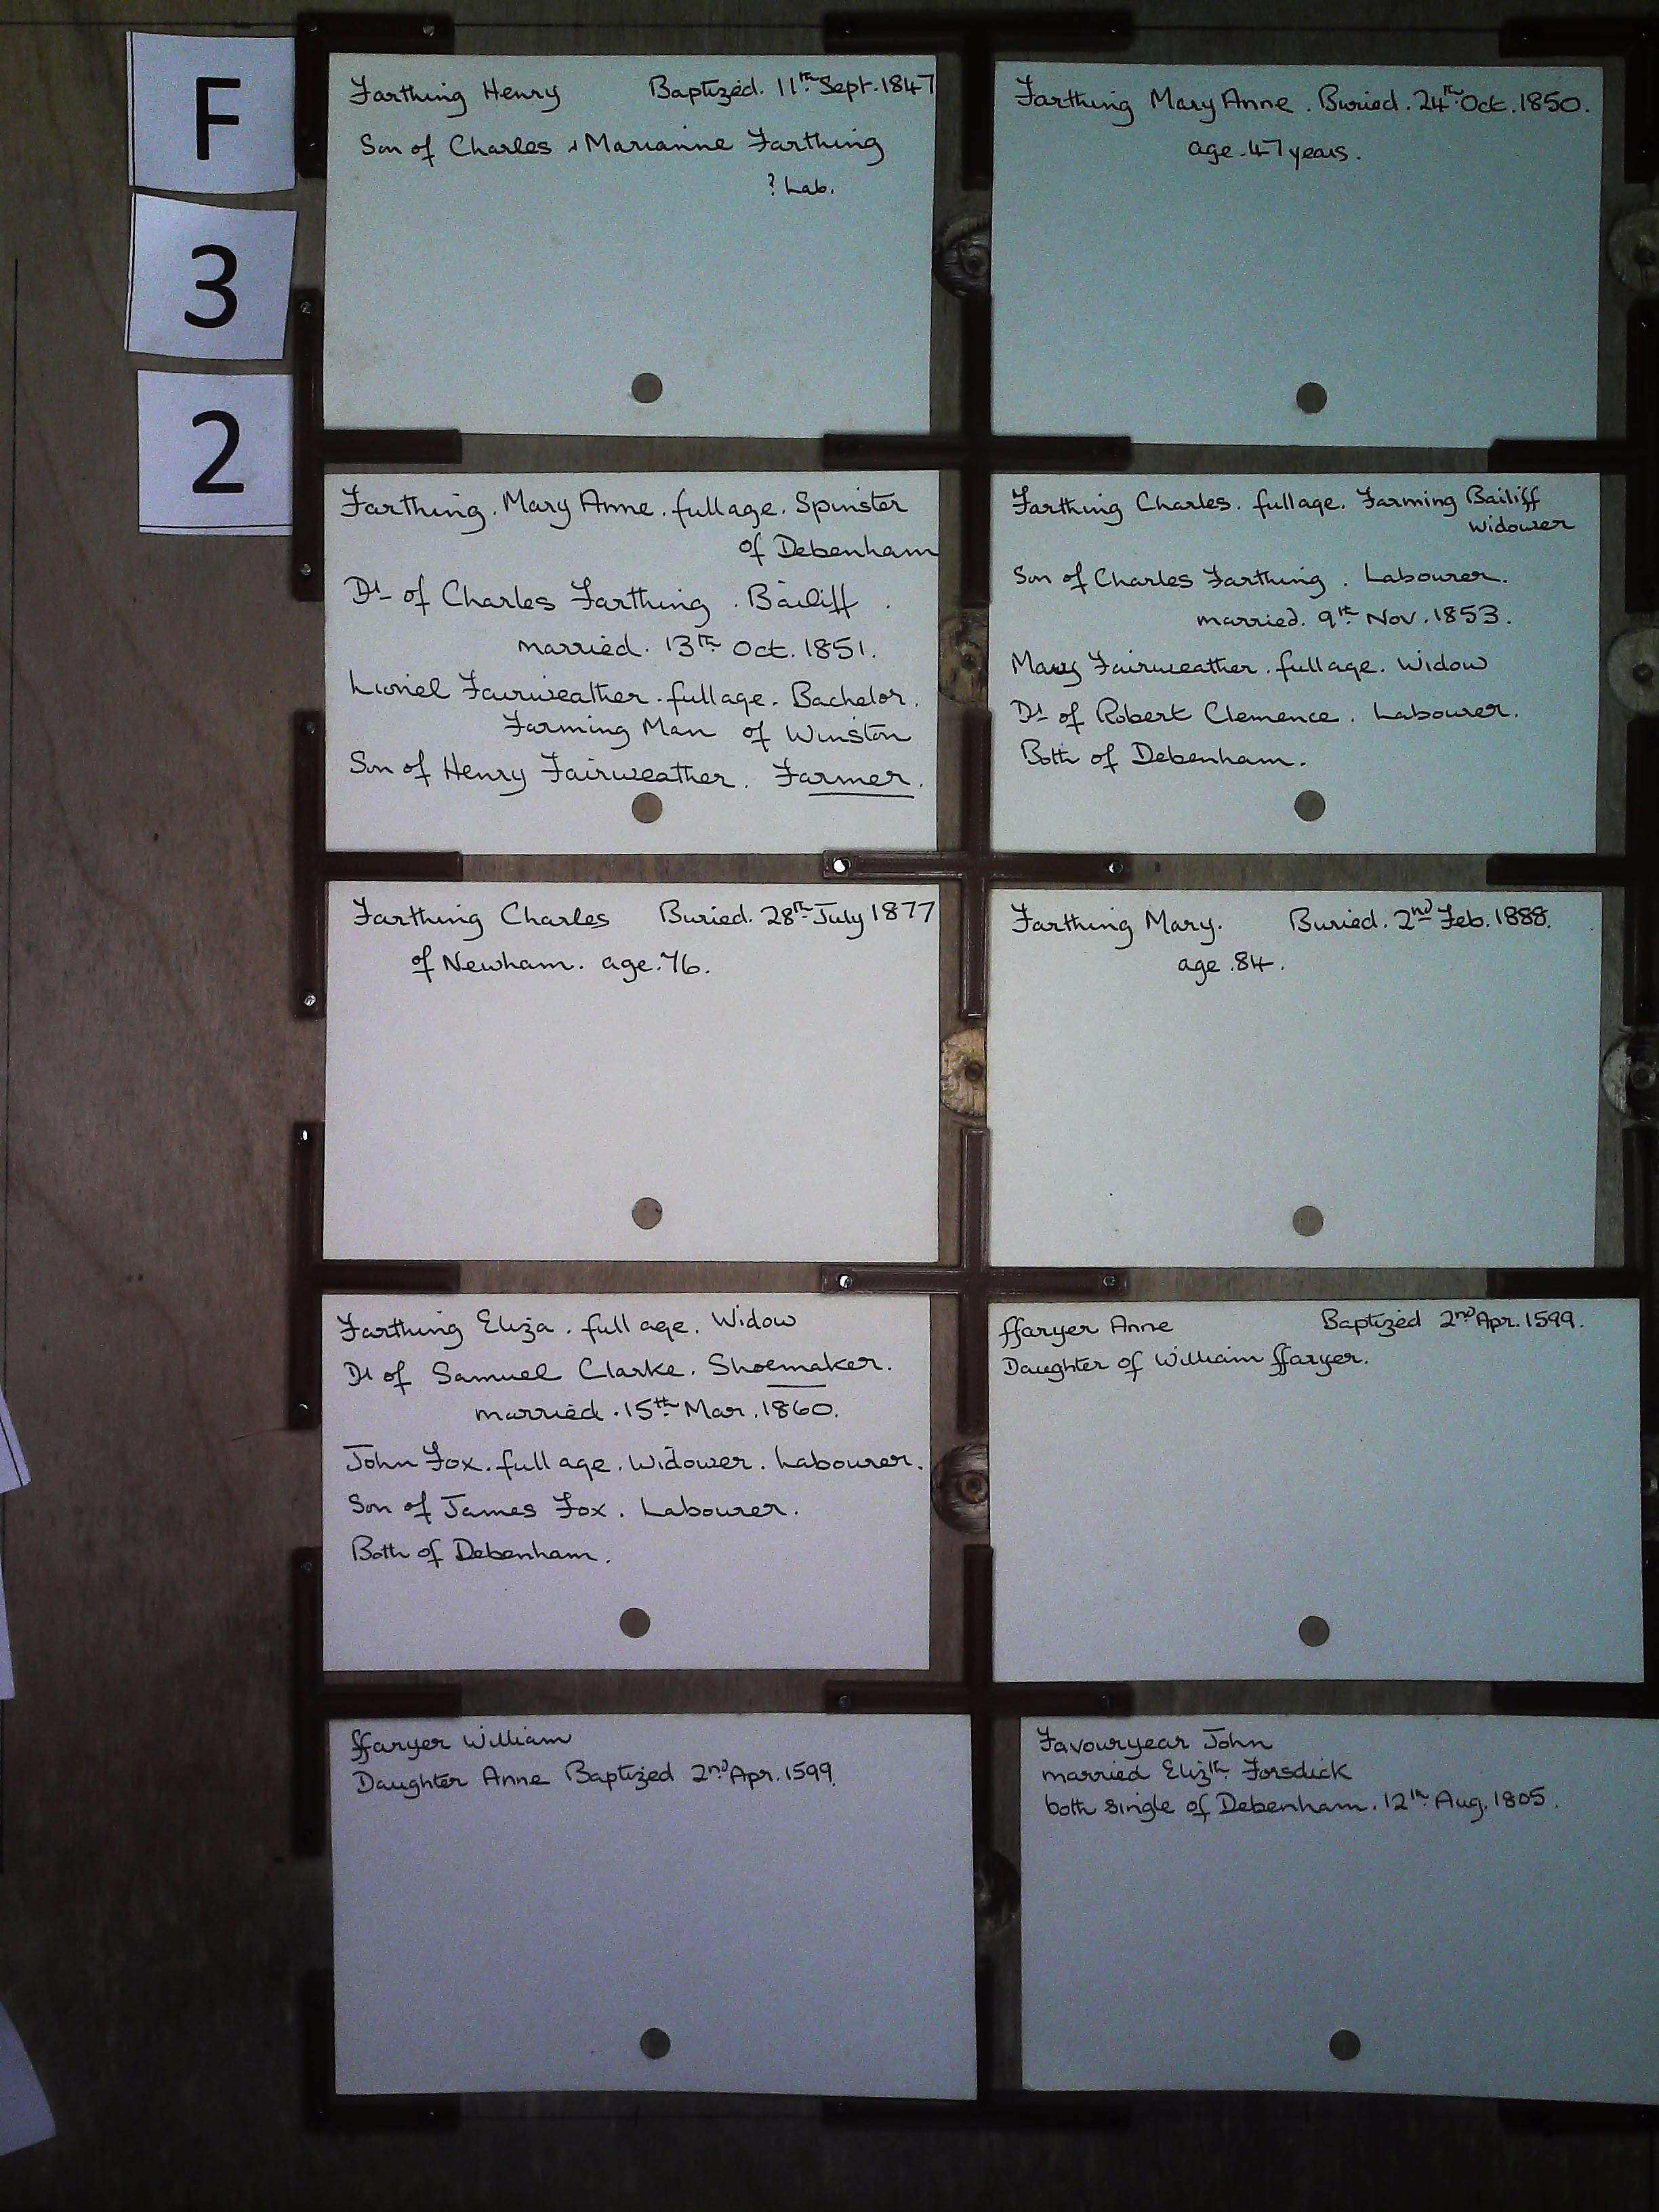 F
3
2
Farthing Henry Baptized. 11th Sept. 1847
Son of Charles & Marianne Farthing
? Lab.
Farthing Mary Anne. Buried. 24th Oct. 1850.
age. 47 years.
Farthing. Mary Anne. full age. Spinster
of Debenham
Dr of Charles Farthing. Bailiff.
married. 13th Oct. 1851.
Lionel Fairweather. full age. Bachelor.
Farming Man of Winston
Son of Henry Fairweather. Farmer.
Farthing Charles. full age. Farming Bailiff
Widower
Son of Charles Farthing. Labourer.
married. 9th Nov. 1853.
Mary Fairweather. full age. Widow
Dr of Robert Clemence. Labourer.
Both of Debenham.
Farthing Charles Buried. 28th July 1877
of Newham. age. 76.
Farthing Mary. Buried. 2nd Feb. 1888.
age. 84.
Farthing Eliza. full age. Widow
Dr of Samuel Clarke. Shoemaker.
married. 15th Mar. 1860.
John Fox. full age. Widower. Labourer.
Son of James Fox. Labourer.
Both of Debenham.
ffaryer Anne Baptized 2nd Apr. 1599.
Daughter of William ffaryer.
ffaryer William
Daughter Anne Baptized 2nd Apr. 1599.
Favouryear John
married Elizth Forsdick
both single of Debenham. 12th Aug. 1805.